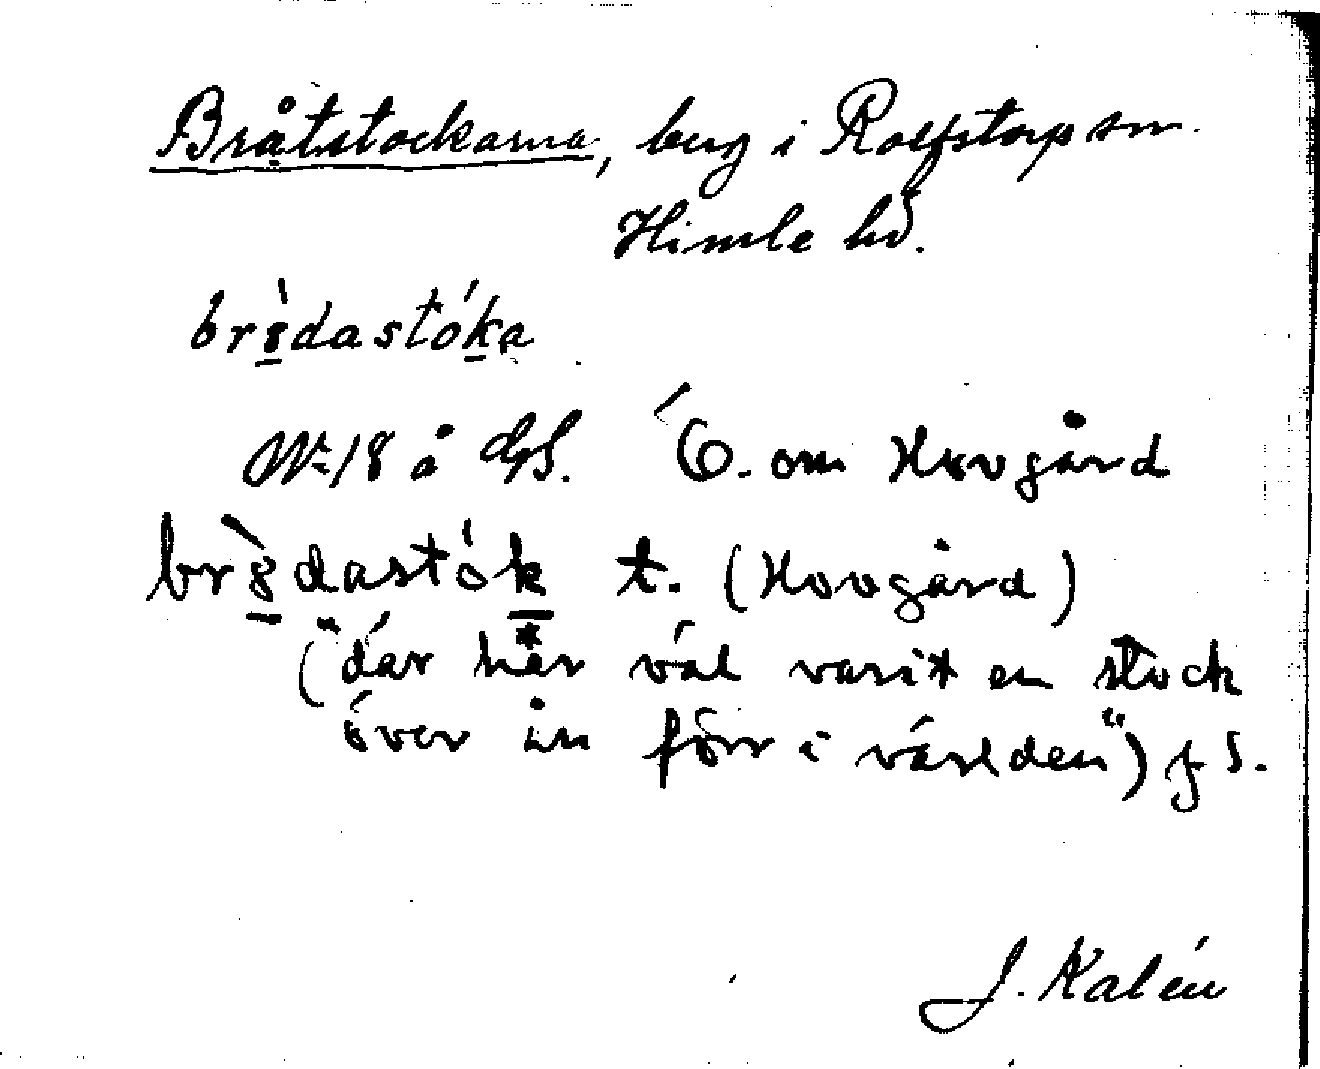 Bråtstockarna, berg i Rolfstorp sn.
Himle hd.
br8̀dastóka
Nr 18 å GS. Ö. om Hovgård
br8̀dastók t. (Hovgård)
("där här väl varit en stock
över ån förr i världen") f S.
J. Kalén